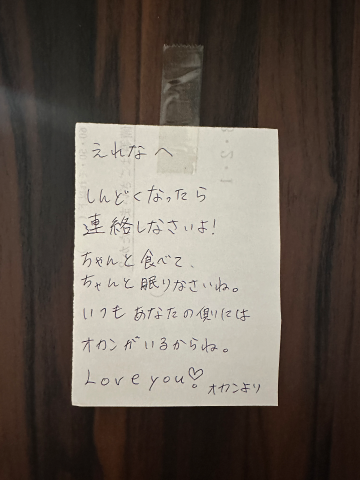 えれなへ
しんどくなったら
連絡しなさいよ!
ちゃんと食べて、
ちゃんと眠りなさいね。
いつもあなたの側には
オカンがいるからね。
Love you!♡
オカンより